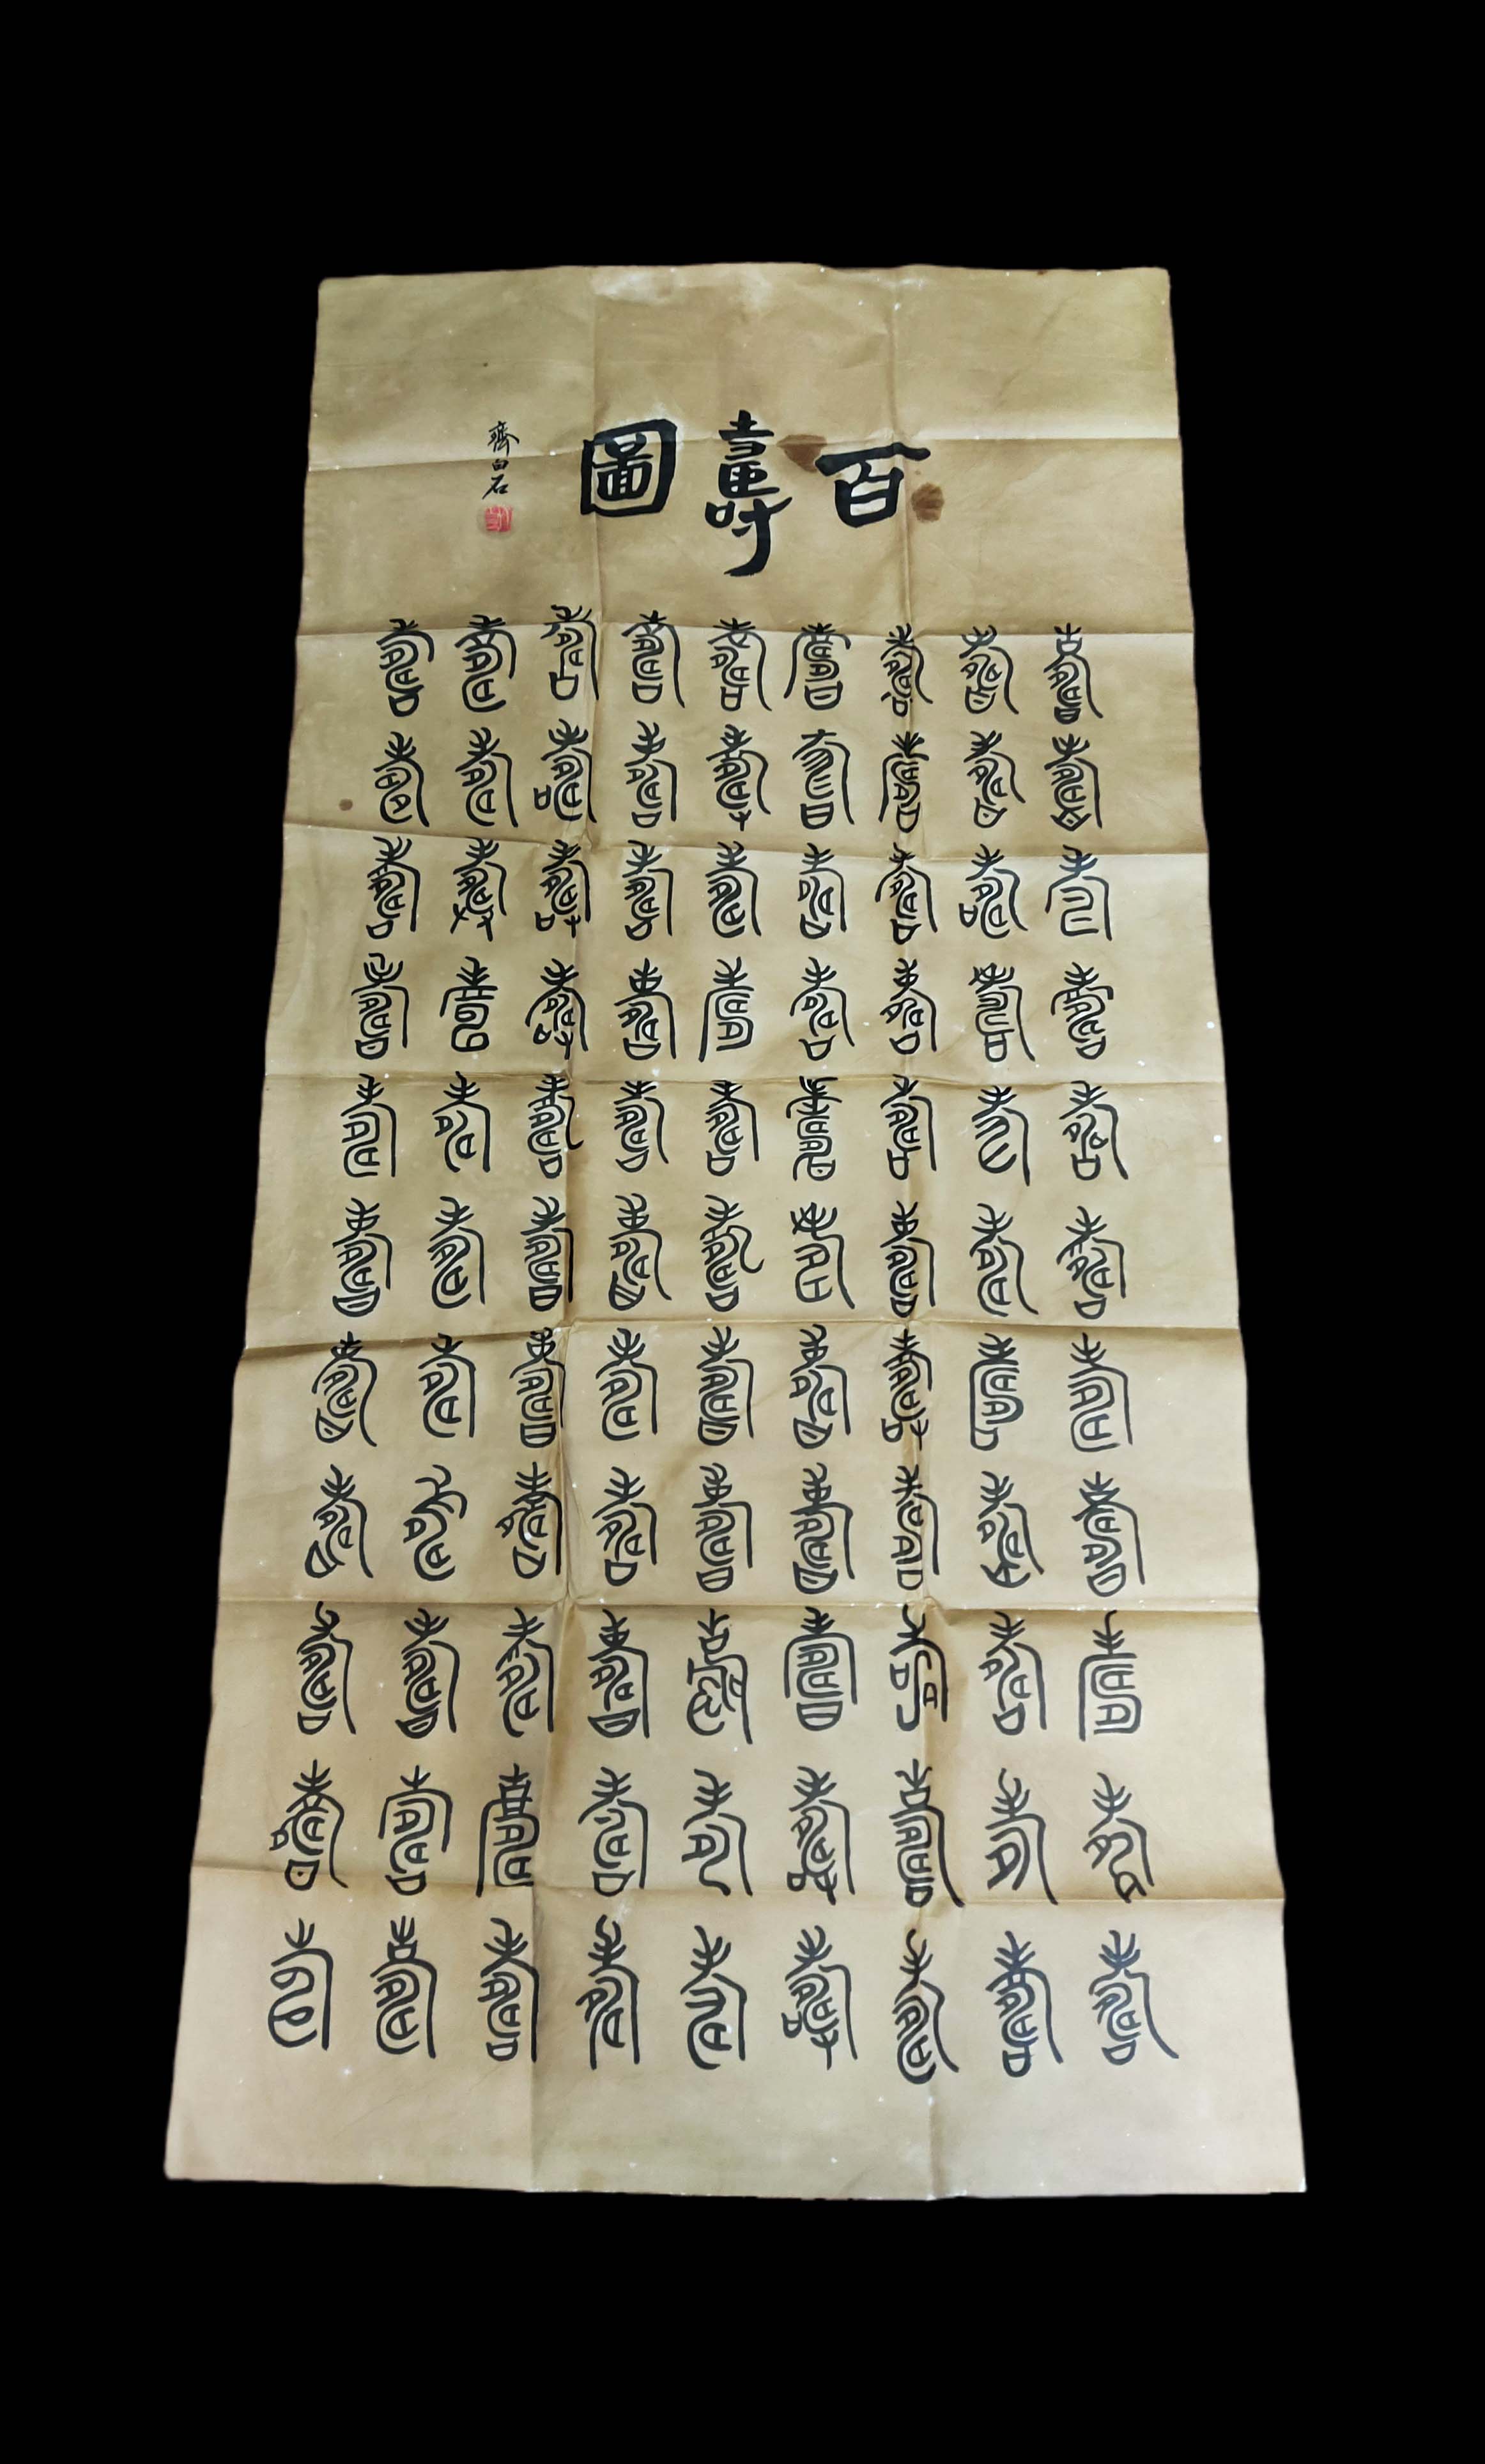 百壽圖
齊白石
壽壽壽壽壽壽壽壽壽
壽壽壽壽壽壽壽壽壽
壽壽壽壽壽壽壽壽壽
壽壽壽壽壽壽壽壽壽
壽壽壽壽壽壽壽壽壽
壽壽壽壽壽壽壽壽壽
壽壽壽壽壽壽壽壽壽
壽壽壽壽壽壽壽壽壽
壽壽壽壽壽壽壽壽壽
壽壽壽壽壽壽壽壽壽
壽壽壽壽壽壽壽壽壽